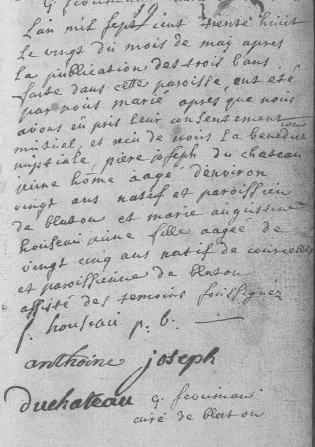 L'an mil sept cent trente huit
Le vingt du mois de may apres
la publication des trois bans
faite dans cette paroisse, ont esté
par nous marié apres que nous
avons eu pris leur consentement
mutuel, et receu de nous la benedic tion
nuptiale, piere joseph du chateau
jeune home aagé d'environ
vingt ans natif et paroissien
de blaton et marie augustine
houseau jeune fille aagée de
vingt cinq ans native de
et paroissienne de blaton
assisté des temoins soussignez
j. houseau p. b.
anthoine joseph
duchateau g.
curé de blaton